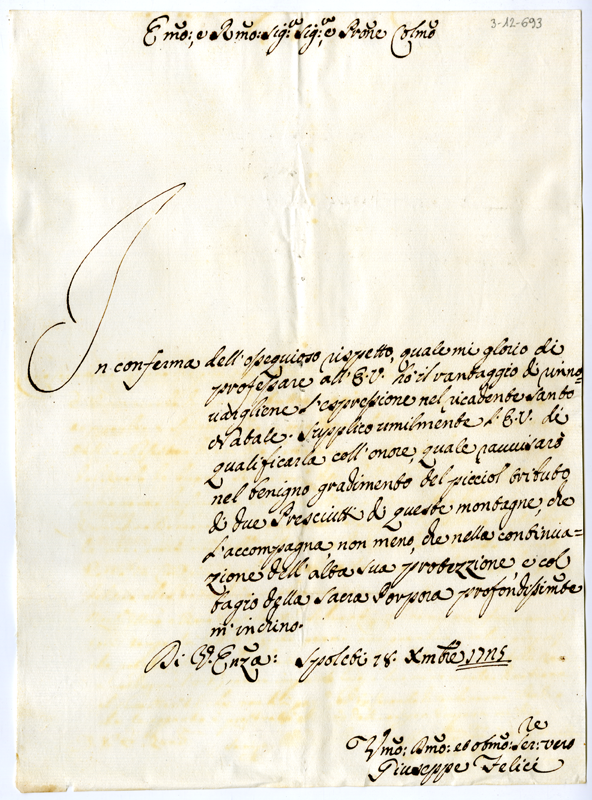 3-12-693
Emo: e Rmo: Sig:r Sig:r, e Prone Colmo
In conferma dell'ossequioso rispetto, quale mi glorio di
professare all'E.V. hò il vantaggio di rinno=
vargliene l'espressione nel ricadente Santo
Natale. Supplico umilmente l'E.V. di
qualificarla coll'onore, quale ravvisarò
nel benigno gradimento del picciol tributo
di due Presciutti di queste montagne, che
l'accompagna, non meno, che nella continua=
zione dell'alta sua protezzione, e col
bagio della Sacra Porpora profondissimte
m'inchino.
Di V. Enza: Spoleti 18. Xmbre 1725
Vmo: Dmo: et obmo: Serre: vero
Giuseppe Felici